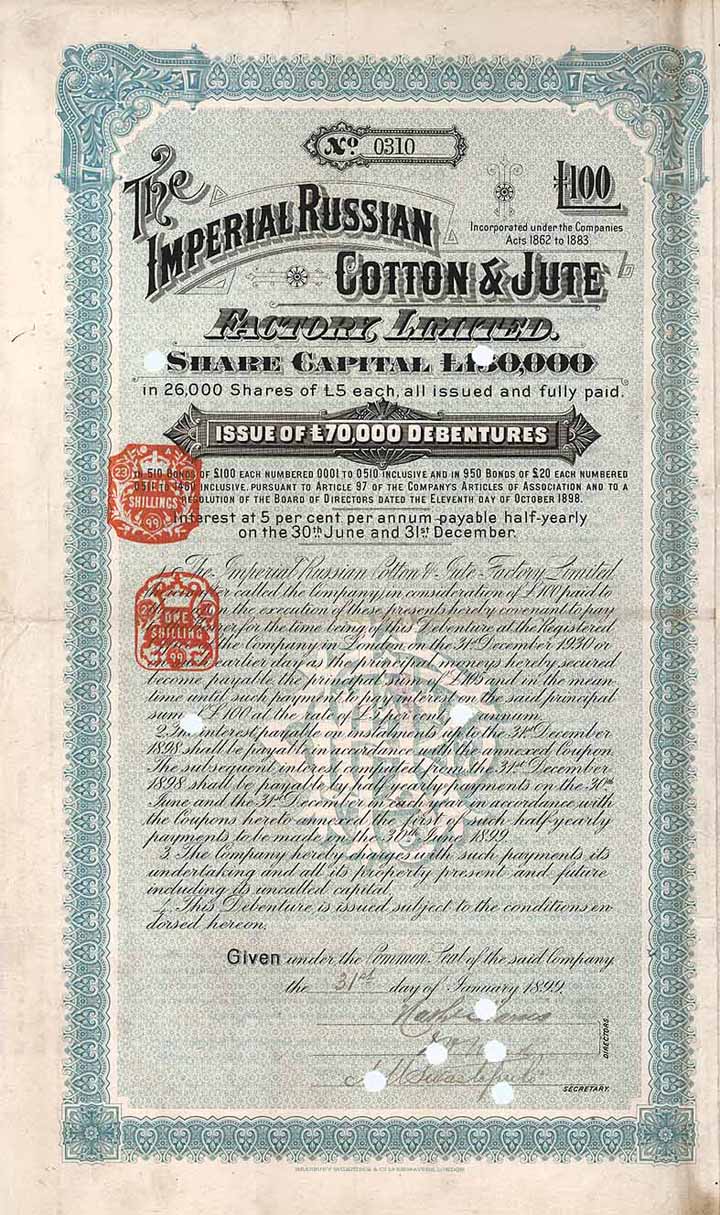 No. 0310
£100
The
Imperial Russian
Incorporated under the Companies
Acts 1862 to 1883
Cotton & Jute
Factory, Limited.
Share Capital £130,000
in 26,000 Shares of £5 each, all issued and fully paid.
ISSUE OF £70,000 DEBENTURES
in 510 Bonds of £100 each numbered 0001 to 0510 inclusive and in 950 Bonds of £20 each numbered
0511 to 1460 inclusive, pursuant to Article 97 of the Company's Articles of Association and to a
Resolution of the Board of Directors dated the Eleventh day of October 1898.
Interest at 5 per cent per annum payable half-yearly
on the 30th June and 31st December.
1. The Imperial Russian Cotton & Jute Factory Limited
called the Company) in consideration of £100 paid to
on the execution of these presents hereby covenant to pay
for the time being of this Debenture at the Registered
the Company in London on the 31st December 1930 or
earlier day as the principal moneys hereby secured
become payable the principal sum of £105 and in the mean-
time until such payment to pay interest on the said principal
sum of £100 at the rate of £5 per cent annum.
2. The interest payable on instalments up to the 31st December
1898 shall be payable in accordance with the annexed Coupon.
The subsequent interest computed from the 31st December
1898 shall be payable by half yearly payments on the 30th
June and the 31st December in each year in accordance with
the Coupons hereto annexed the first of such half yearly
payments to be made on the 30th June 1899.
3. The Company hereby charges with such payments its
undertaking and all its property present and future
including its uncalled capital.
4. This Debenture is issued subject to the conditions en-
dorsed hereon.
Given under the Common Seal of the said Company
the 31st day of January 1899.
DIRECTORS.
SECRETARY.
23
SHILLINGS
99
ONE
SHILLING
99
LONDON